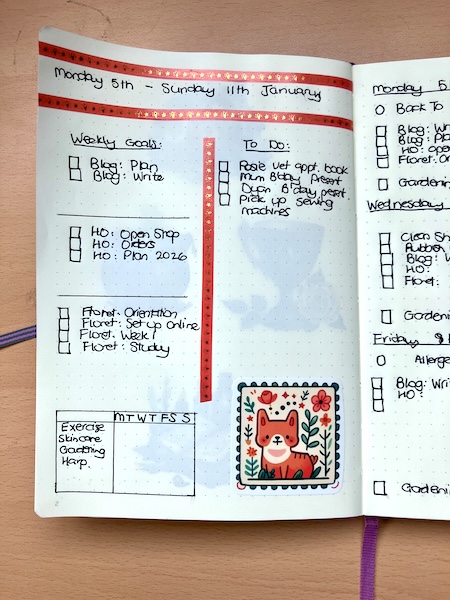 Monday 5th - Sunday 11th January
Weekly Goals:
Blog: Plan
Blog: Write
HO: Open Shop
HO: Orders
HO: Plan 2026
Floret: Orientation
Floret: Set up Online
Floret: Week 1
Floret: Study
M T W T F S S
Exercise
Skincare
Gardening
Harp.
2
To Do:
Rosie vet appt. book
Mum B'day present
B'day present.
Pick up sewing
machines
Monday 5
Back To
Blog: Wr
Blog: Pla
HO: Ope
Floret: On
Gardeni
Wednesday
Clean Sh
Rubbish
Blog: W
HO:
Floret:
Gardeni
Friday
Allerge
Blog: Wri
HO:
Gardeni